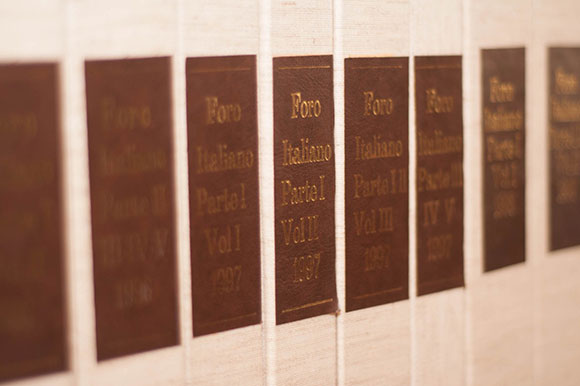 Foro
Parte III
III-IV-V
1996
Foro
Italiano
Parte I
Vol I
1997
Foro
Italiano
Parte I
Vol II
1997
Foro
Italiano
Parte I II
Vol III
1997
Foro
Italiano
Parte III
IV V
1997
Foro
Italiano
Parte I
Vol I
1998